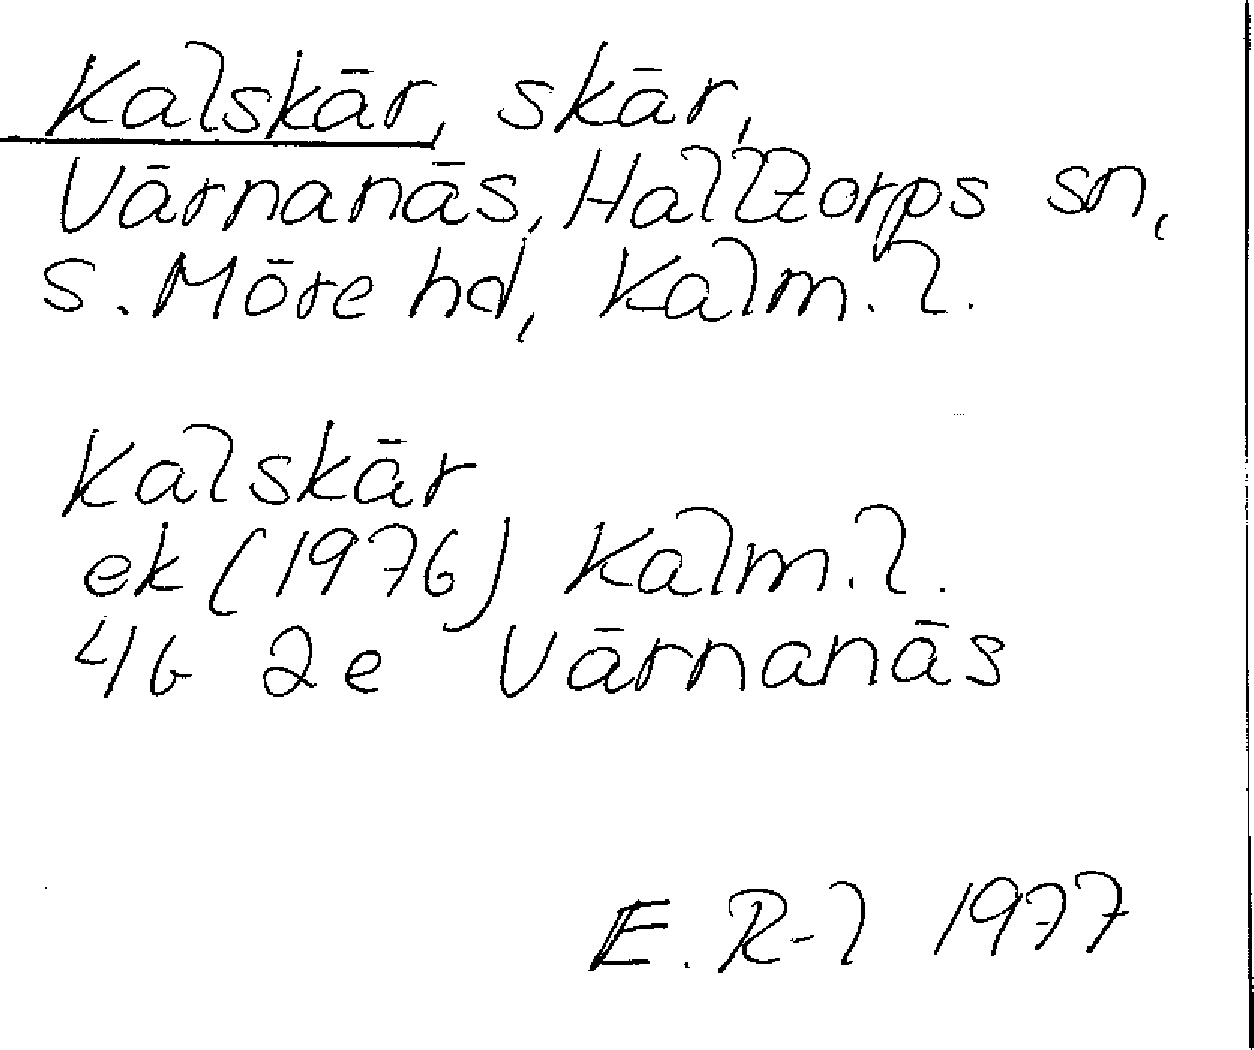 Kalskär, skär,
Värnanäs, Halltorps sn,
S. Möre hd, Kalm. l.
Kalskär
ek (1976) Kalm. l.
4G 2e Värnanäs
E. R-l 1977